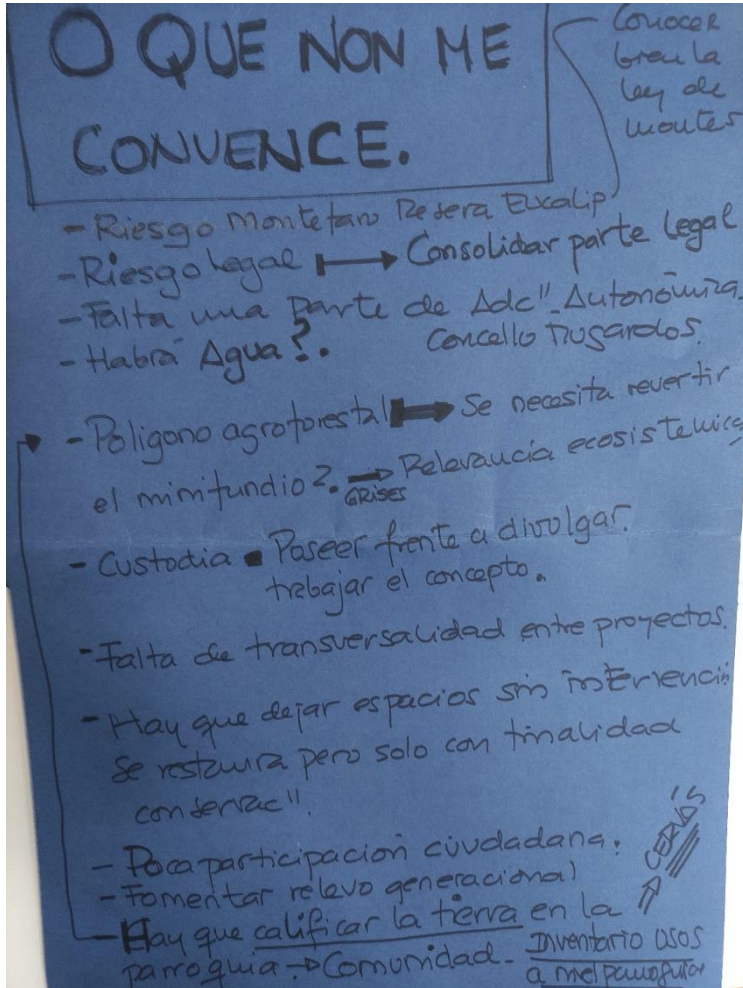 O QUE NON ME
CONVENCE.
Conocer
bien la
ley de
montes
- Riesgo Montefaro Eucalip
- Riesgo Legal → Consolidar parte legal
- Falta una parte de Adc" Autonómica.
Concello Mugardos.
- Habrá Agua?.
- Poligono agroforestal → Se necesita revertir
el minifundio?. → Relevancia ecosistemica
GRISES
- Custodia ▪ Poseer frente a divolgar.
trabajar el concepto.
- Falta de transversalidad entre proyectos.
- Hay que dejar espacios sin intervenció
se restaura pero solo con finalidad
conservac".
- Poca participación ciudadana.
- Fomentar relevo generacional
- Hay que calificar la tierra en la → CERVÁS
parroquia → Comunidad - Inventario usos
a nivel